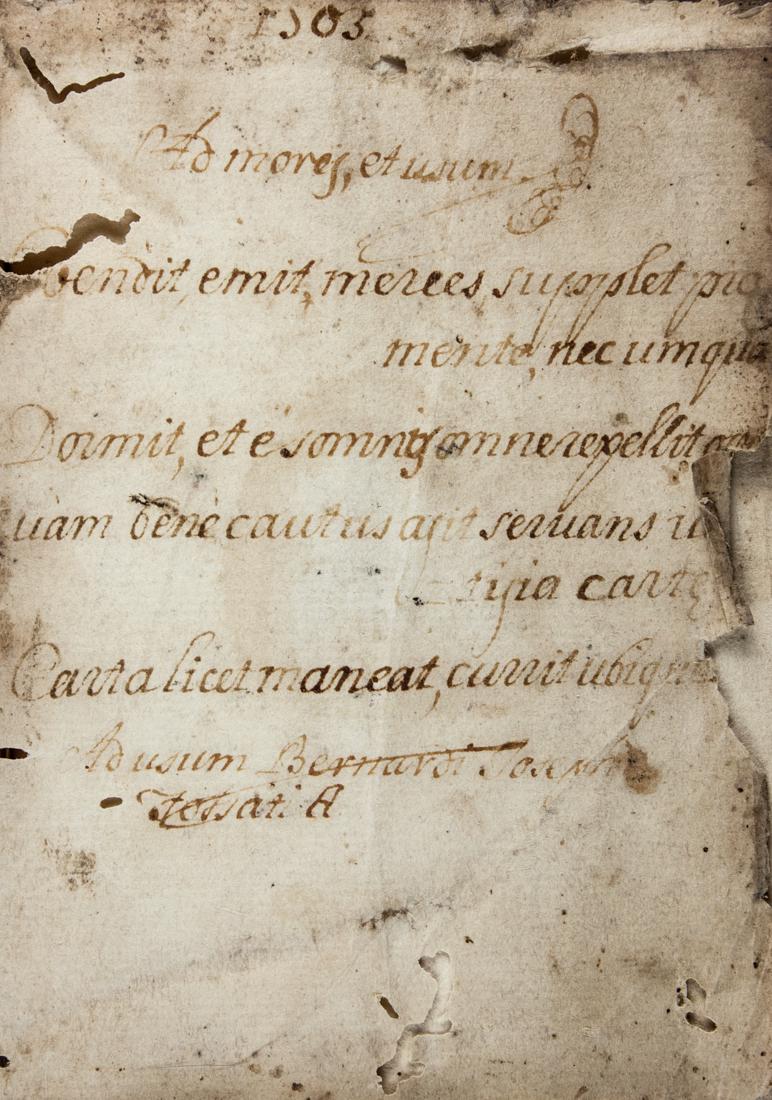 1703
Ad mores, et usum
Vendit, emit, merces supplet pro
mente, nec umqua
Dormit, et è somnis omne repellit
uam benè cautus agit seruans u
tigia cartę
Carta licet maneat, currit ubique
Ad usum Bernardi Joseph
Fossati A